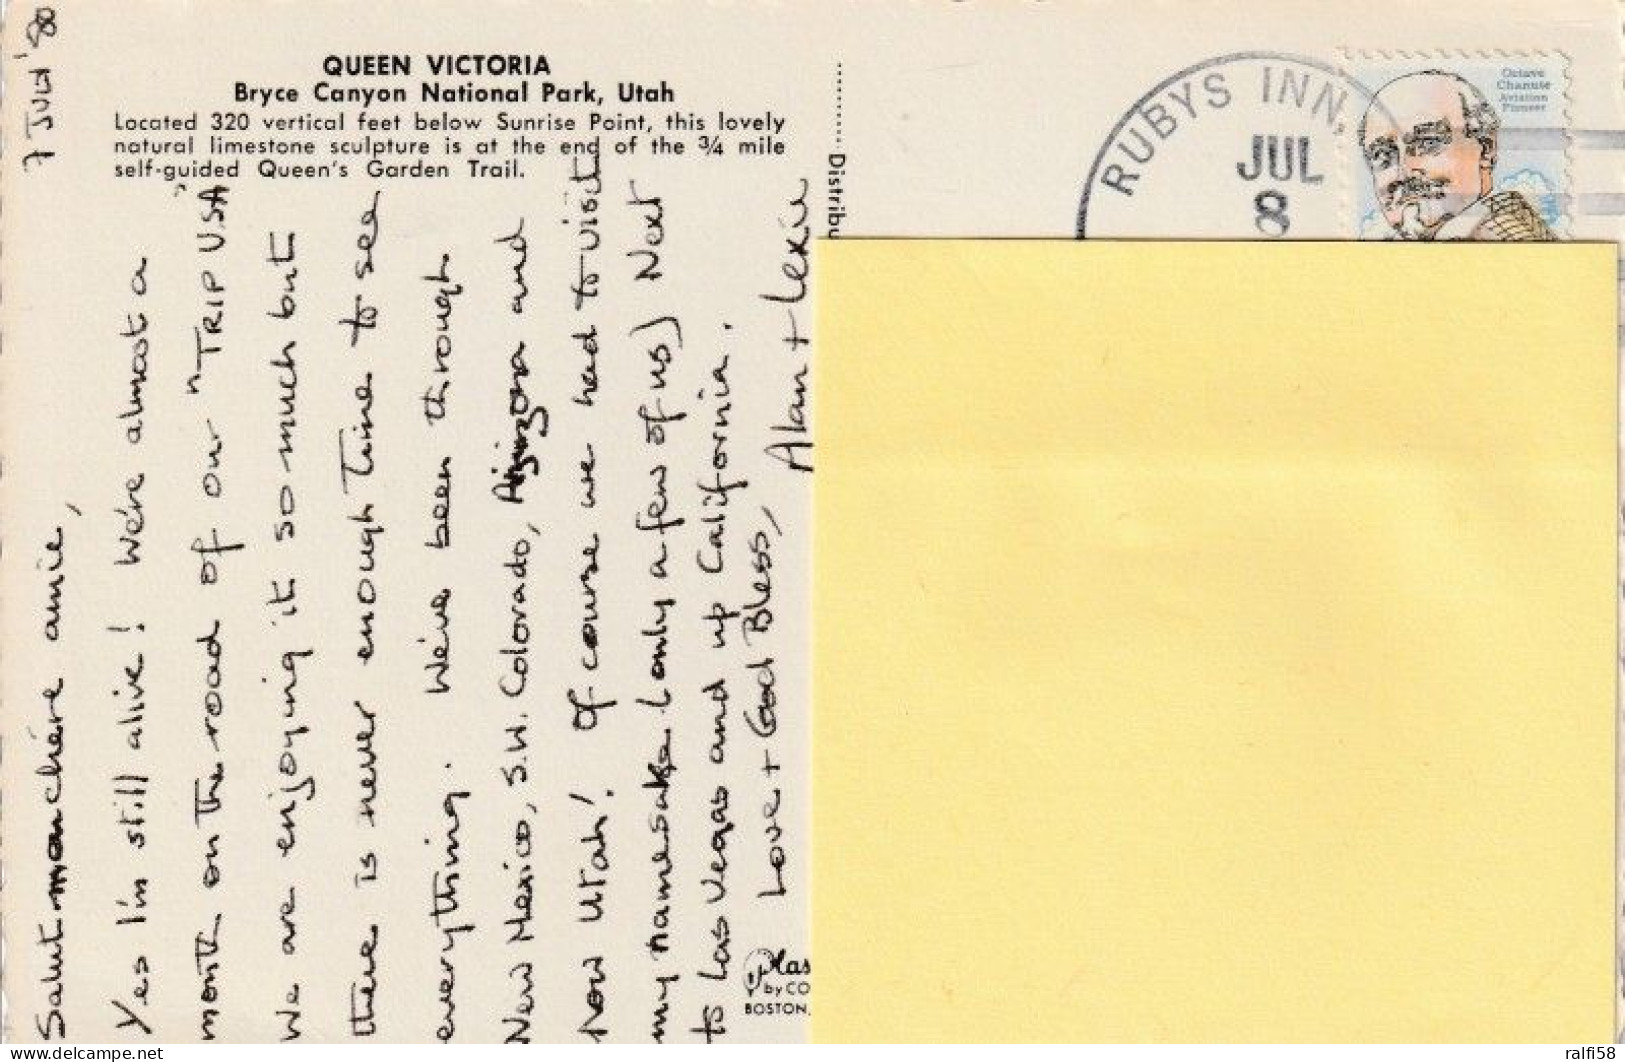 QUEEN VICTORIA
Bryce Canyon National Park, Utah
Located 320 vertical feet below Sunrise Point, this lovely
natural limestone sculpture is at the end of the ¾ mile
self-guided Queen's Garden Trail.
7 '88
Salut ma chère amie,
Yes I'm still alive! We're almost a
month on the road of our "TRIP USA"
We are enjoying it so much but
there is never enough time to see
everything. We've been through
New Mexico, S.W. Colorado, Arizona and
now Utah! Of course we had to visit
my namesake (only a few of us) Next
to Las Vegas and up California.
Love + God Bless,
Alan + Lexie
Distribu
by CO
BOSTON,
RUBYS INN,
JUL
8
Octave
Chanute
Aviation
Pioneer
ralfi58